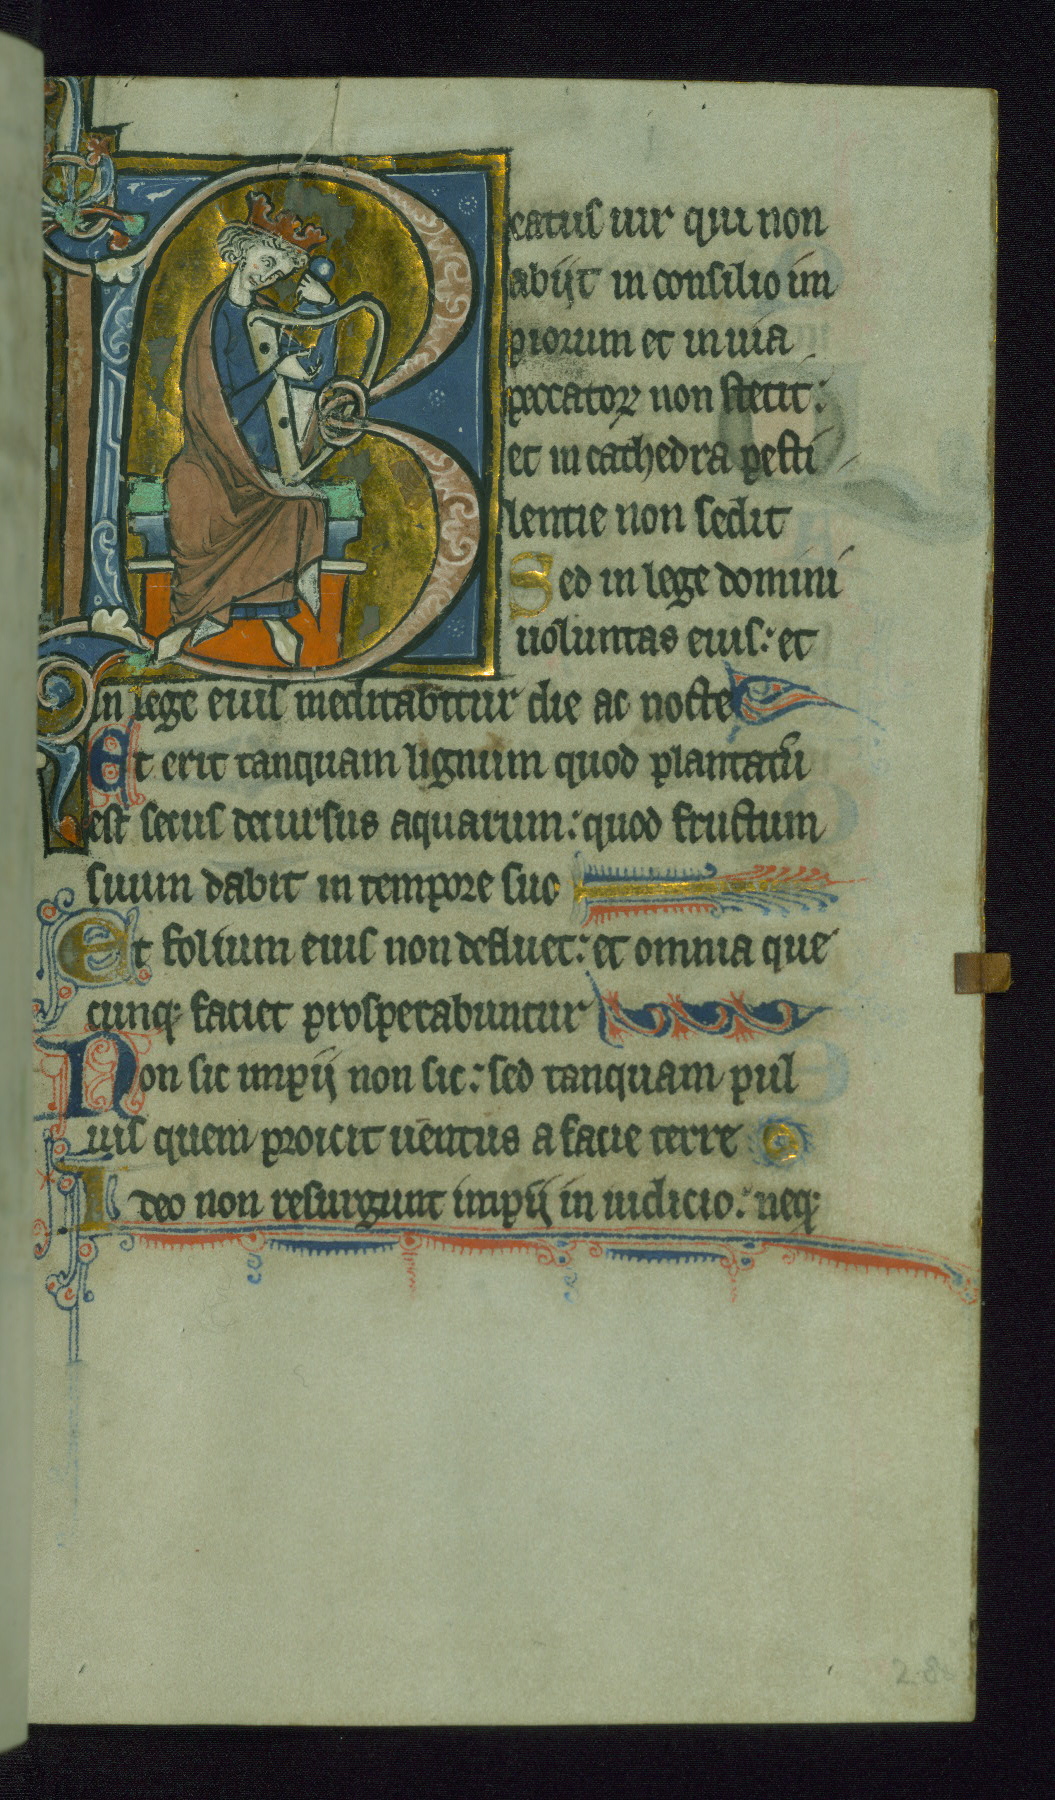 Beatus uir qui non
abijt in consilio im
piorum et in uia
peccatoꝝ non stetit:
et in cathedra pesti
lentie non sedit
Sed in lege domini
uoluntas eius: et
in lege eius meditabitur die ac nocte
Et erit tanquam lignum quod plantatū
est secus decursus aquarum: quod fructum
suum dabit in tempore suo
Et folium eius non defluet: et omnia que
cunq; faciet prosperabuntur
Non sic impij non sic: sed tanquam pul
uis quem proicit uentus a facie terre
Ideo non resurgunt impij in iudicio: neq;
28